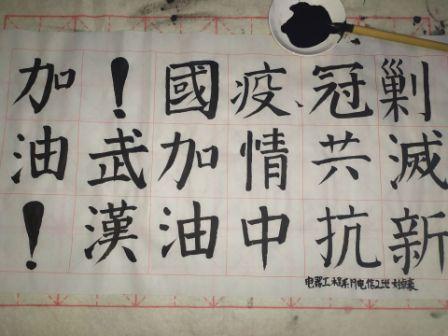 剿滅新
冠共抗
疫、情中
國加油
！武漢
加油！
电器工程系 电信2班